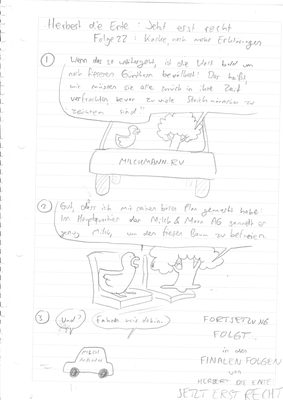 Herbert die Ente: Jetzt erst recht
Folge 22: Kommen noch mehr Erklärungen
① Wenn das so weitergeht, ist die Welt bald von
noch fieseren Günthern bevölkert! Das heißt,
wir müssten sie alle zurück in ihre Zeit
verfrachten, bevor zu viele
sind
MILCHMANN.RV
② Gut, dass ich mit meinen besten Plan gemacht habe:
Im Hauptquartier der Milch & Mann AG
genug Milch, um den fiesen Baum zu befreien
③ Und?
Fahren wir dahin.
MILCH
MANN
FORTSETZUNG
FOLGT
in den
FINALEN FOLGEN
von
HERBERT DIE ENTE
JETZT ERST RECHT